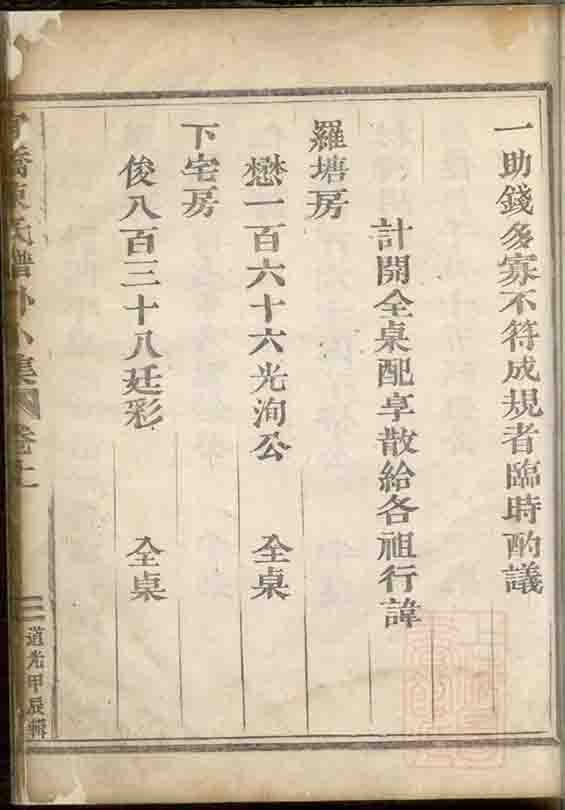 一助錢多寡不符成規者臨時酌議
計開全桌配享散給各祖行諱
羅塘房
懋一百六十六光洵公 全桌
下宅房
俊八百三十八廷彩 全桌
橋陳氏譜外小集 卷上
三 道光甲辰輯